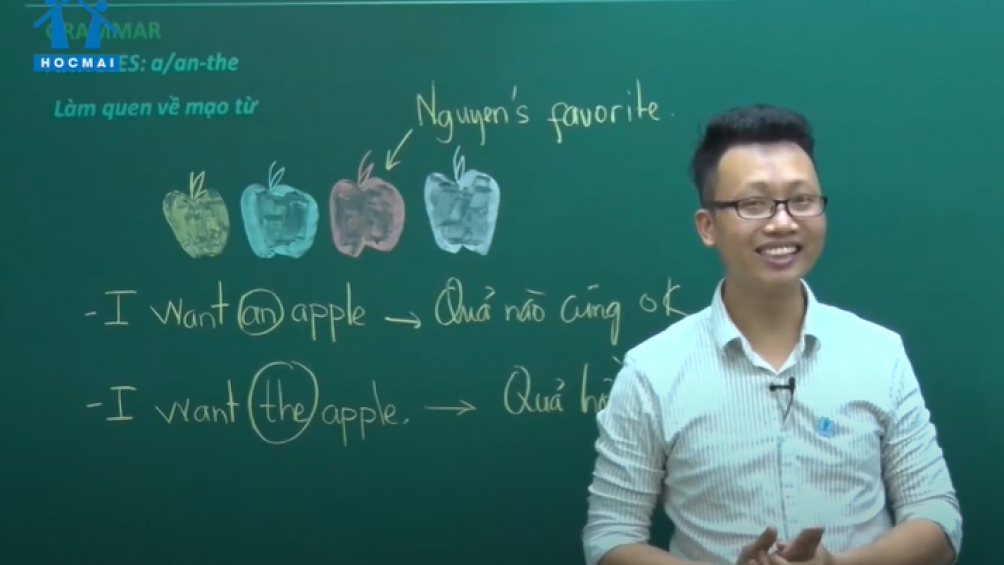 GRAMMAR
HOCMAI
a/an-the
Làm quen về mạo từ
Nguyen's favorite.
- I want an apple → Quả nào cũng OK
- I want the apple. → Quả